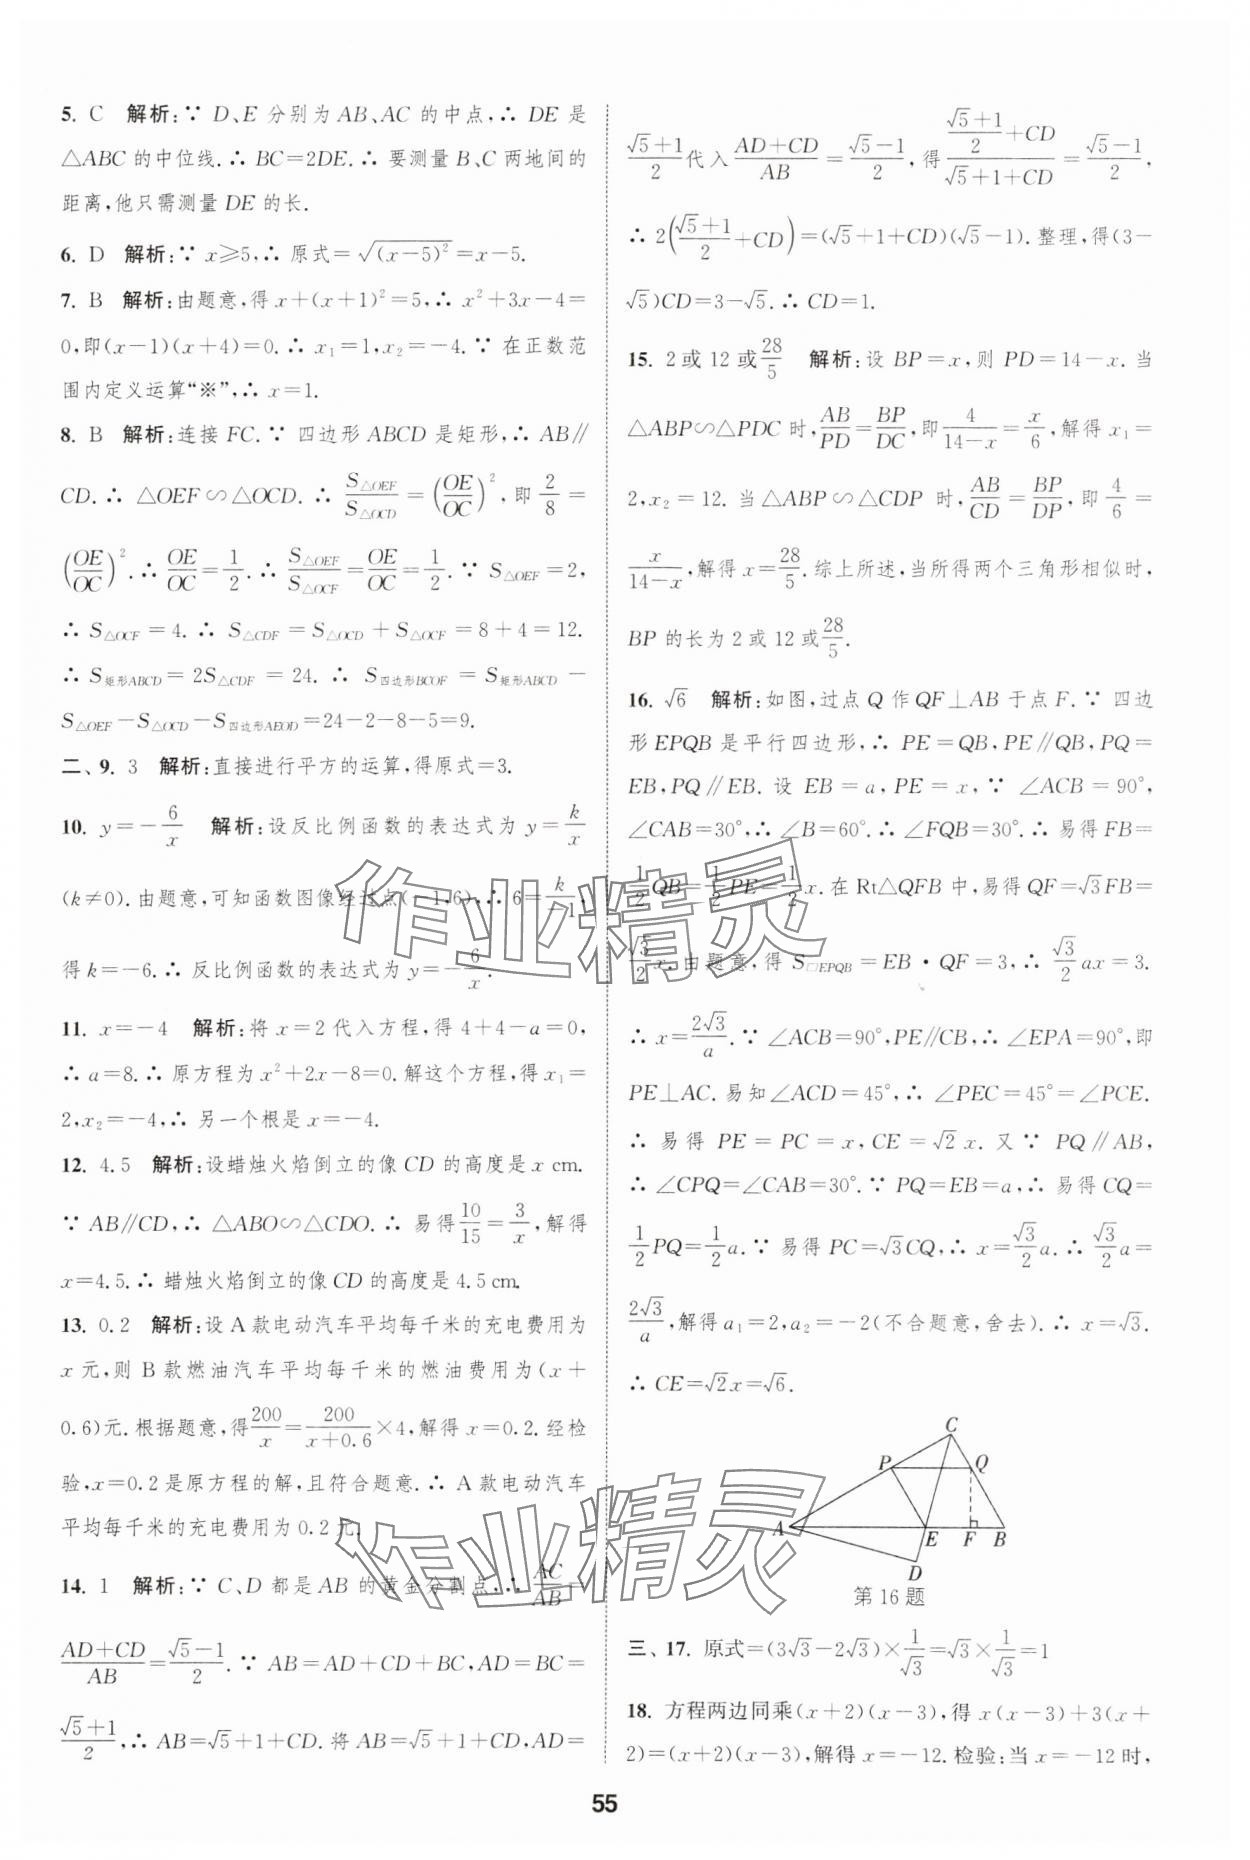 5. C 解析:∵ D、E 分别为 AB、AC 的中点,∴ DE 是
△ABC 的中位线.∴ BC=2DE.∴ 要测量 B、C 两地间的
距离,他只需测量 DE 的长.
6. D 解析:∵ x≥5,∴ 原式=√((x-5)²)=x-5.
7. B 解析:由题意,得 x+(x+1)²=5,∴ x²+3x-4=
0,即(x-1)(x+4)=0.∴ x₁=1,x₂=-4.∵ 在正数范
围内定义运算“※”,∴ x=1.
8. B 解析:连接 FC.∵ 四边形 ABCD 是矩形,∴ AB∥
CD.∴ △OEF∽△OCD.∴ S△OEF/S△OCD=(OE/OC)²,即 2/8=
(OE/OC)².∴ OE/OC=1/2.∴ S△OEF/S△OCF=OE/OC=1/2.∵ S△OEF=2,
∴ S△OCF=4.∴ S△CDF=S△OCD+S△OCF=8+4=12.
∴ S矩形ABCD=2S△CDF=24.∴ S四边形BCOF=S矩形ABCD-
S△OEF-S△OCD-S四边形AEOD=24-2-8-5=9.
二、9. 3 解析:直接进行平方的运算,得原式=3.
10. y=-6/x 解析:设反比例函数的表达式为 y=k/x
(k≠0).由题意,可知函数图像经过点(-1,6).∴ 6=k/-1,
得 k=-6.∴ 反比例函数的表达式为 y=-6/x.
11. x=-4 解析:将 x=2 代入方程,得 4+4-a=0,
∴ a=8.∴ 原方程为 x²+2x-8=0.解这个方程,得 x₁=
2,x₂=-4,∴ 另一个根是 x=-4.
12. 4.5 解析:设蜡烛火焰倒立的像 CD 的高度是 x cm.
∵ AB∥CD,∴ △ABO∽△CDO.∴ 易得 10/15=3/x,解得
x=4.5.∴ 蜡烛火焰倒立的像 CD 的高度是 4.5 cm.
13. 0.2 解析:设 A 款电动汽车平均每千米的充电费用为
x 元,则 B 款燃油汽车平均每千米的燃油费用为(x+
0.6)元.根据题意,得 200/x=200/(x+0.6)×4,解得 x=0.2.经检
验,x=0.2 是原方程的解,且符合题意.∴ A 款电动汽车
平均每千米的充电费用为 0.2 元.
14. 1 解析:∵ C、D 都是 AB 的黄金分割点,∴ AC/AB=
(AD+CD)/AB=(√5-1)/2.∵ AB=AD+CD+BC,AD=BC=
(√5+1)/2,∴ AB=√5+1+CD.将 AB=√5+1+CD,AD=
(√5+1)/2 代入 (AD+CD)/AB=(√5-1)/2,得 ((√5+1)/2+CD)/(√5+1+CD)=(√5-1)/2,
∴ 2((√5+1)/2+CD)=(√5+1+CD)(√5-1).整理,得(3-
√5)CD=3-√5.∴ CD=1.
15. 2或12或28/5 解析:设 BP=x,则 PD=14-x.当
△ABP∽△PDC 时,AB/PD=BP/DC,即 4/(14-x)=x/6,解得 x₁=
2,x₂=12.当△ABP∽△CDP 时,AB/CD=BP/DP,即 4/6=
x/(14-x),解得 x=28/5.综上所述,当所得两个三角形相似时,
BP 的长为 2 或 12 或 28/5.
16. √6 解析:如图,过点 Q 作 QF⊥AB 于点 F.∵ 四边
形 EPQB 是平行四边形,∴ PE=QB,PE∥QB,PQ=
EB,PQ∥EB.设 EB=a,PE=x,∵ ∠ACB=90°,
∠CAB=30°,∴ ∠B=60°.∴ ∠FQB=30°.∴ 易得 FB=
1/2QB=1/2PE=1/2x.在 Rt△QFB 中,易得 QF=√3FB=
√3/2x.由题意,得 S□EPQB=EB·QF=3,∴ √3/2ax=3.
∴ x=2√3/a.∵ ∠ACB=90°,PE∥CB,∴ ∠EPA=90°,即
PE⊥AC.易知∠ACD=45°,∴ ∠PEC=45°=∠PCE.
∴ 易得 PE=PC=x,CE=√2x.又∵ PQ∥AB,
∴ ∠CPQ=∠CAB=30°.∵ PQ=EB=a,∴ 易得 CQ=
1/2PQ=1/2a.∵ 易得 PC=√3CQ,∴ x=√3/2a.∴ √3/2a=
2√3/a,解得 a₁=2,a₂=-2(不合题意,舍去).∴ x=√3.
∴ CE=√2x=√6.
C
P
Q
A
E
F
B
D
第16题
三、17. 原式=(3√3-2√3)×1/√3=√3×1/√3=1
18. 方程两边同乘(x+2)(x-3),得 x(x-3)+3(x+
2)=(x+2)(x-3),解得 x=-12.检验:当 x=-12时,
55
作业精灵
作业精灵